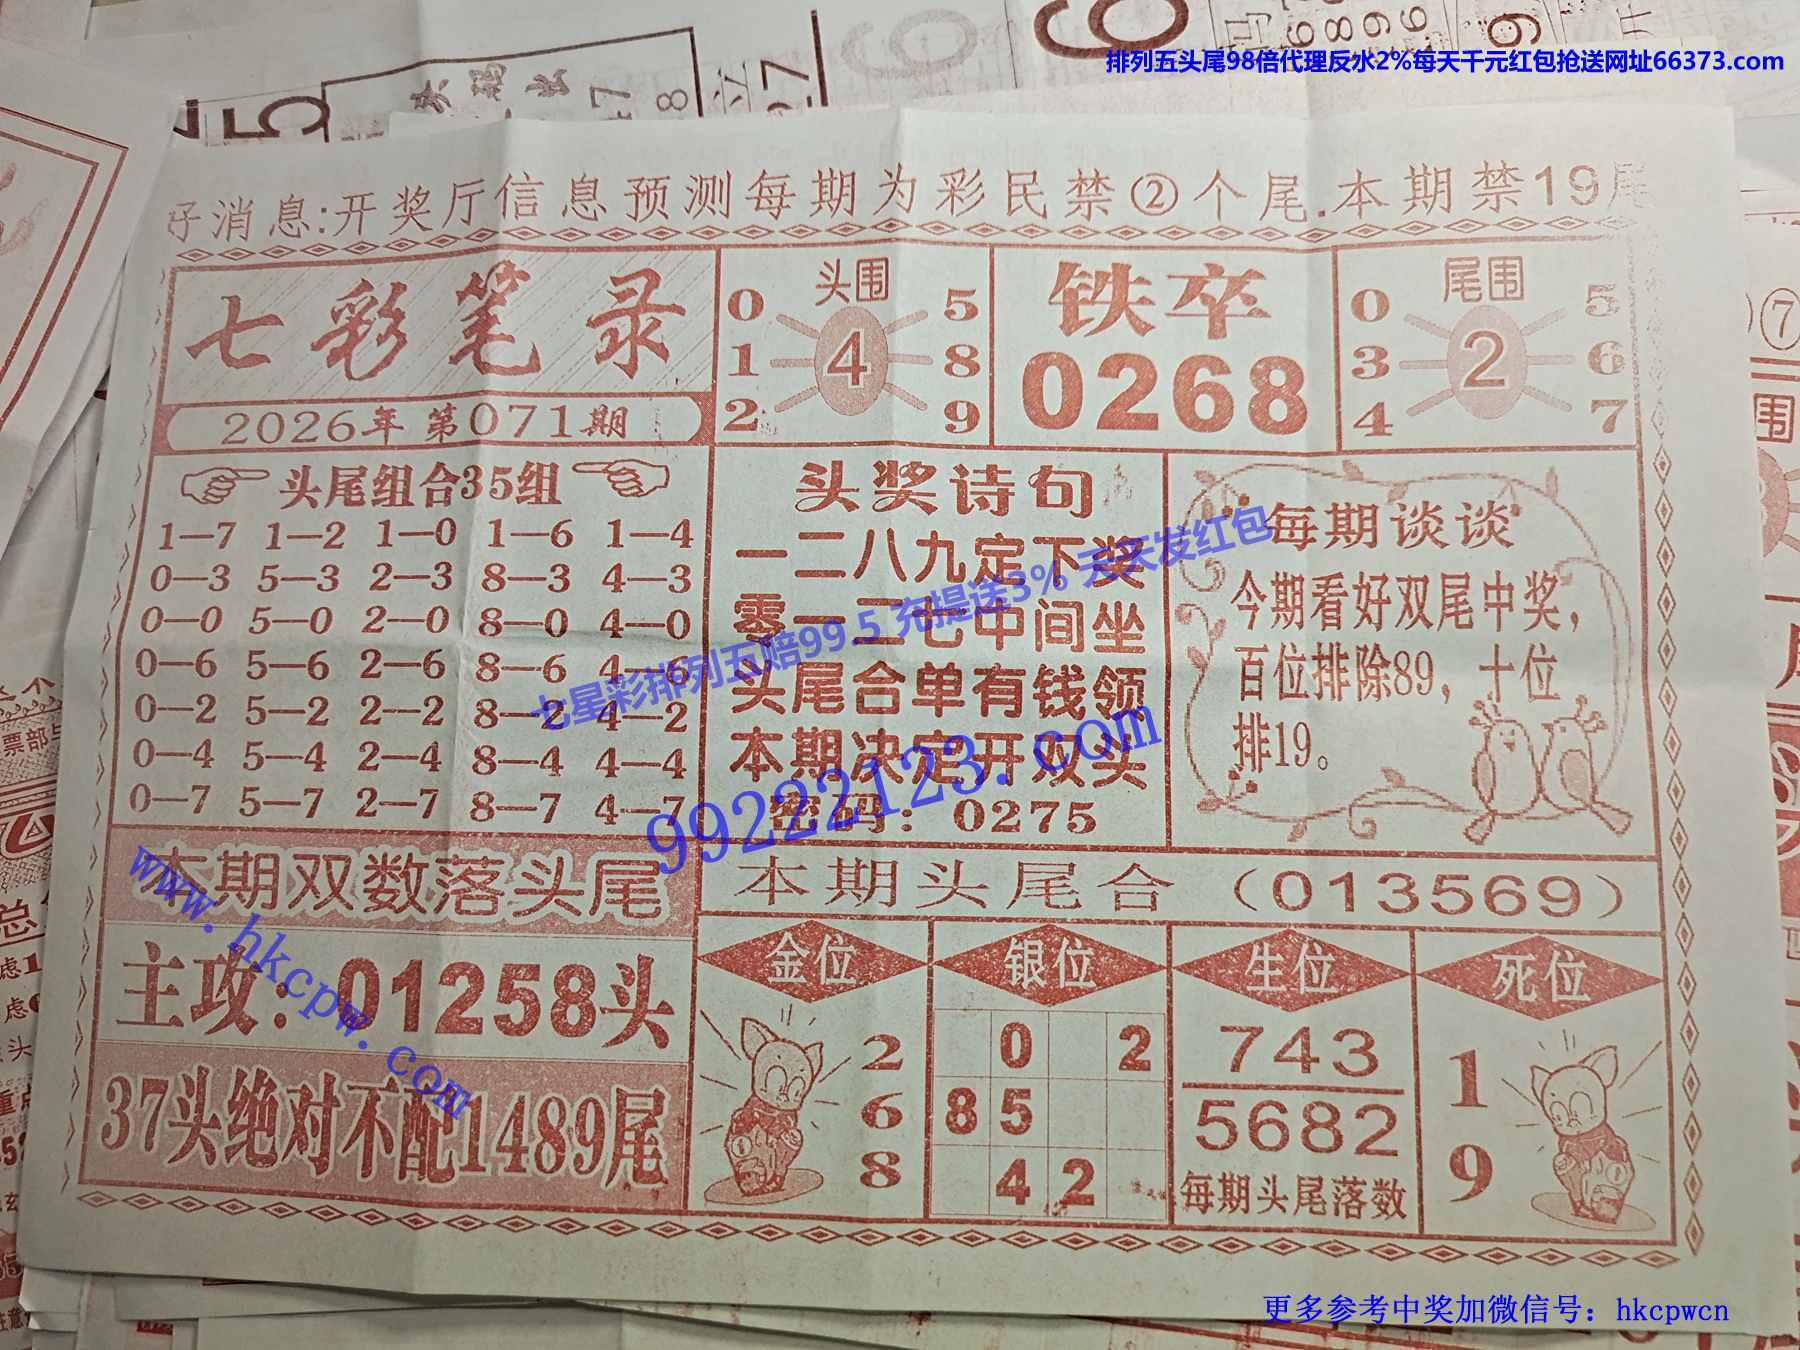 排列五头尾98倍代理反水2%每天千元红包抢送网址66373.com
好消息:开奖厅信息预测每期为彩民禁②个尾.本期禁19尾
七彩笔录
2026年 第071期
头围
0 5
1 4 8
2 9
铁卒
0268
尾围
0 5
3 2 6
4 7
头尾组合35组
1—7 1—2 1—0 1—6 1—4
0—3 5—3 2—3 8—3 4—3
0—0 5—0 2—0 8—0 4—0
0—6 5—6 2—6 8—6 4—6
0—2 5—2 2—2 8—2 4—2
0—4 5—4 2—4 8—4 4—4
0—7 5—7 2—7 8—7 4—7
头奖诗句
一二八九定下奖
零一二七中间坐
头尾合单有钱领
本期决定开双头
密码: 0275
每期谈谈
今期看好双尾中奖，
百位排除89，十位
排19。
七星彩排列五赔99.5 充提送3% 天天发红包
99222123.com
本期双数落头尾
主攻: 01258头
37头绝对不配1489尾
www.hkcpw.com
本期头尾合（013569）
金位
2
6
8
银位
0 2
8 5
4 2
生位
743
5682
每期头尾落数
死位
1
9
更多参考中奖加微信号：hkcpwcn